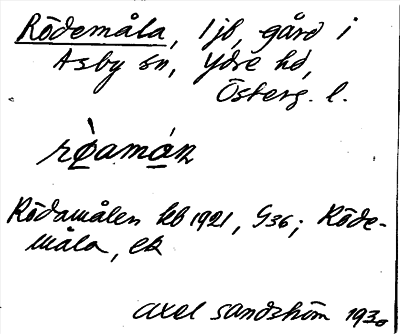 Rödemåla, 1 jb, gård i
Asby sn, Ydre hd,
Österg. l.
Rödamålen kb 1921, G36; Röde-
måla, ek
Axel Sandström 1930